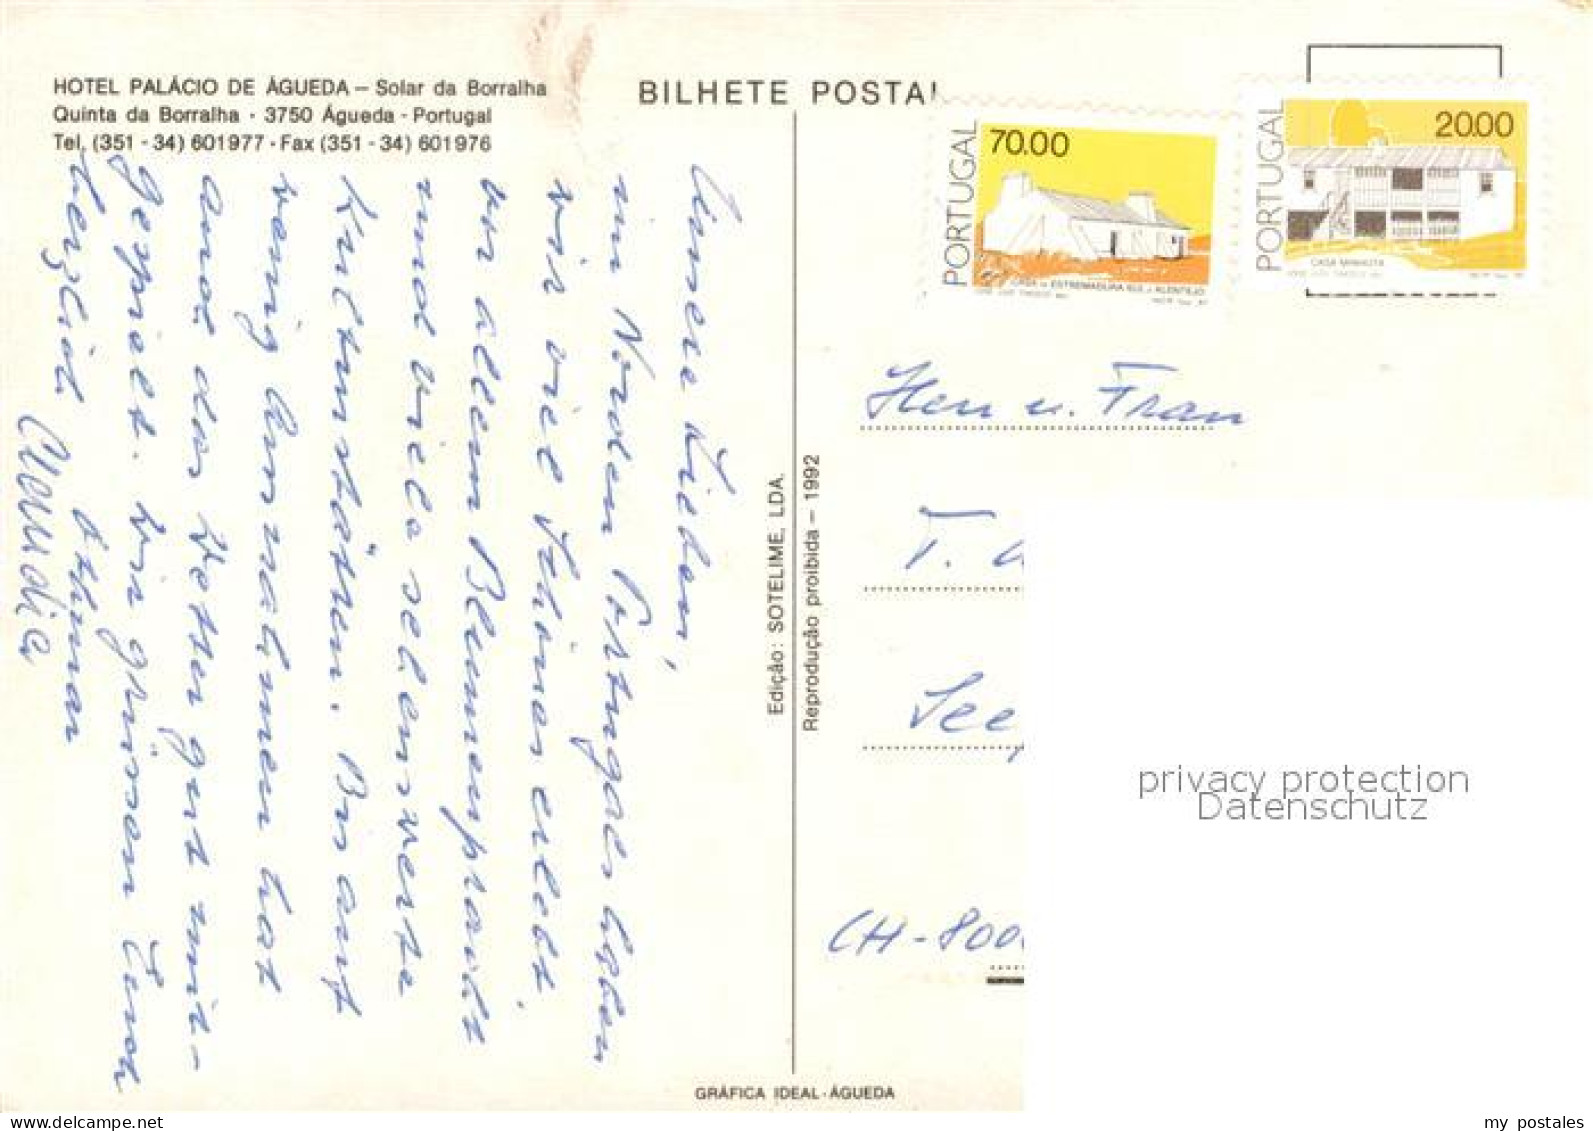 HOTEL PALÁCIO DE ÁGUEDA – Solar da Borralha
Quinta da Borralha · 3750 Águeda · Portugal
Tel. (351 - 34) 601977 · Fax (351 - 34) 601976
BILHETE POSTAL
PORTUGAL
70.00
CASA DA ESTREMADURA SUL E ALENTEJO
PORTUGAL
20.00
CASA MINHOTA
Unsere Lieben,
im Norden Portugals haben
wir viel Schönes erlebt,
vor allem Blumenpracht
und viele sehenswerte
Kulturstätten. Bis auf
wenig Ausnahmen hat
auch das Wetter gut mit-
gespielt. Wir grüssen Euch
herzlich
Othmar
Claudia
Edição: SOTELIME, LDA.
Reprodução proibida – 1992
Herr u. Frau
T.
See
CH-8000
GRÁFICA IDEAL - ÁGUEDA
privacy protection
Datenschutz
my postales